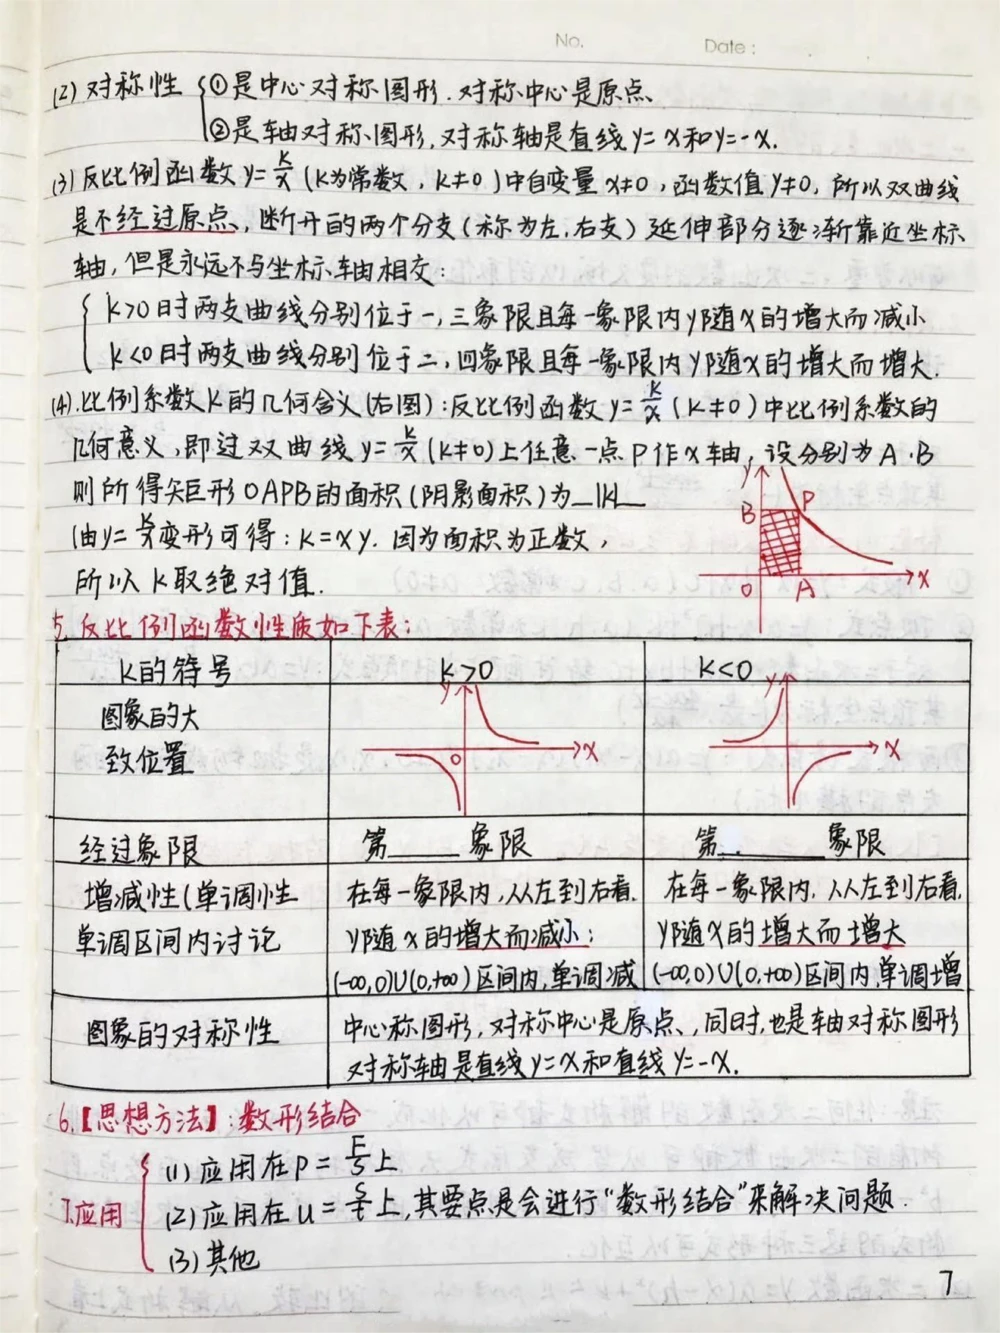 No.
Date:
(2) 对称性 ①是中心对称图形.对称中心是原点、
②是轴对称图形,对称轴是直线y=x和y=-x.
(3) 反比例函数y=k/x (k为常数,k≠0)中自变量x≠0,函数值y≠0,所以双曲线
是不经过原点、断开的两个分支(称为左.右支)延伸部分逐渐靠近坐标
轴,但是永远不与坐标轴相交:
k>0时两支曲线分别位于一,三象限且每一象限内y随x的增大而减小
k<0时两支曲线分别位于二,四象限且每一象限内y随x的增大而增大.
(4).比例系数k的几何含义(右图):反比例函数y=k/x (k≠0)中比例系数的
几何意义,即过双曲线y=k/x (k≠0)上任意一点P作x轴,设分别为A.B
则所得矩形OAPB的面积(阴影面积)为_|k|_
(由y=k/x变形可得:k=xy.因为面积为正数,
所以k取绝对值.
y
B
P
O
A
x
5.反比例函数性质如下表:
k的符号 k>0 k<0
图象的大
致位置
y
x
O
y
x
经过象限 第____象限 第____象限
增减性(单调性 在每一象限内,从左到右看, 在每一象限内,从左到右看,
单调区间内讨论 y随x的增大而减小; y随x的增大而增大
(-∞,0)∪(0,+∞)区间内,单调减 (-∞,0)∪(0,+∞)区间内,单调增
图象的对称性 中心称图形,对称中心是原点、,同时,也是轴对称图形
对称轴是直线y=x和直线y=-x.
6.【思想方法】:数形结合
7.应用 (1)应用在P=F/S上
(2)应用在u=s/t上,其要点是会进行“数形结合”来解决问题.
(3)其他
7